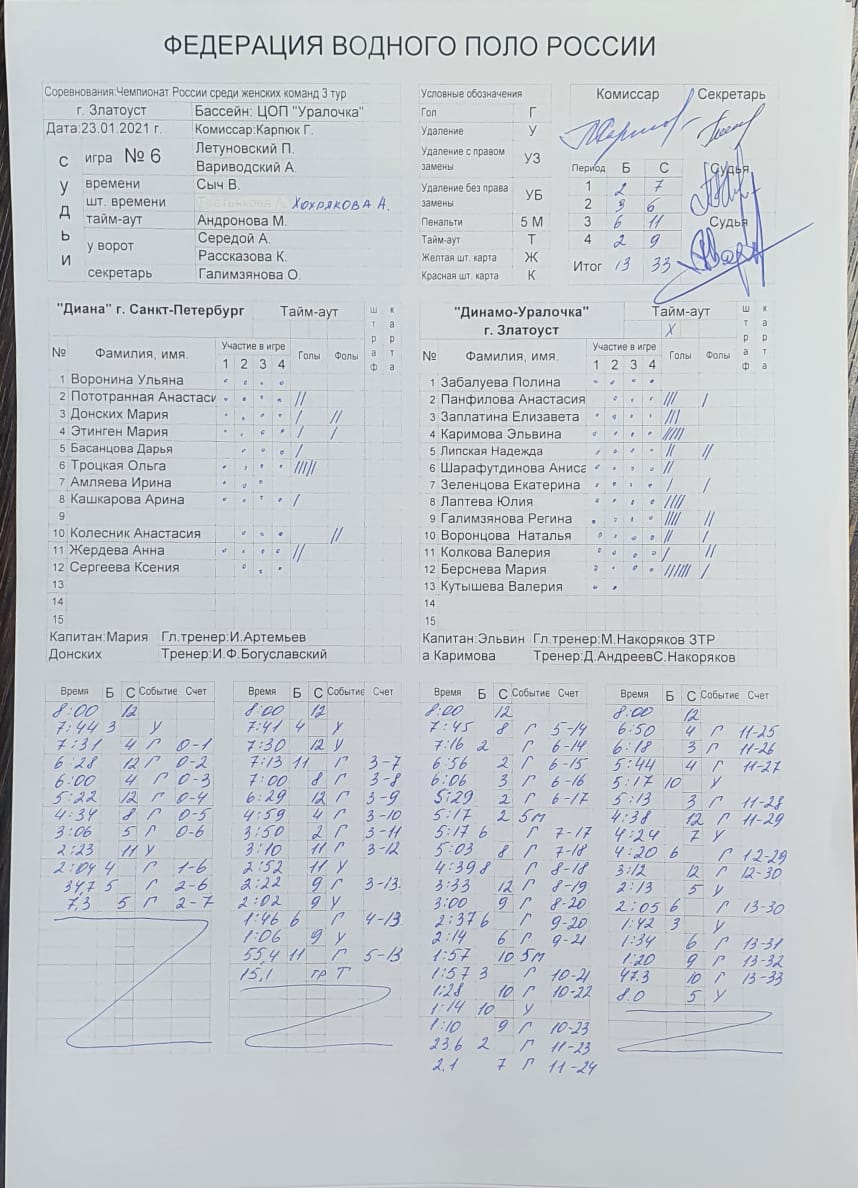 ФЕДЕРАЦИЯ ВОДНОГО ПОЛО РОССИИ
Соревнования:Чемпионат России среди женских команд 3 тур
г. Златоуст Бассейн: ЦОП "Уралочка"
Дата:23.01.2021 г. Комиссар:Карпюк Г.
СУДЬИ
игра № 6 Летуновский П.
Вариводский А.
времени Сыч В.
шт. времени Хохрякова А.
тайм-аут Андронова М.
у ворот Середой А.
Рассказова К.
секретарь Галимзянова О.
Условные обозначения
Гол Г
Удаление У
Удаление с правом замены УЗ
Удаление без права замены УБ
Пенальти 5 М
Тайм-аут Т
Желтая шт. карта Ж
Красная шт. карта К
Комиссар Секретарь
Судья
Судья
Период Б С
1 2 7
2 3 6
3 6 11
4 2 9
Итог 13 33
"Диана" г. Санкт-Петербург Тайм-аут штраф карта
№ Фамилия, имя. Участие в игре 1 2 3 4 Голы Фолы
1 Воронина Ульяна
2 Пототранная Анастаси //
3 Донских Мария / //
4 Этинген Мария / /
5 Басанцова Дарья /
6 Троцкая Ольга /////
7 Амляева Ирина
8 Кашкарова Арина /
9
10 Колесник Анастасия //
11 Жердева Анна //
12 Сергеева Ксения
13
14
15
Капитан:Мария Гл.тренер:И.Артемьев
Донских Тренер:И.Ф.Богуславский
"Динамо-Уралочка" Тайм-аут штраф карта
г. Златоуст X
№ Фамилия, имя. Участие в игре 1 2 3 4 Голы Фолы
1 Забалуева Полина
2 Панфилова Анастасия /// /
3 Заплатина Елизавета ///
4 Каримова Эльвина /////
5 Липская Надежда // //
6 Шарафутдинова Аниса //
7 Зеленцова Екатерина / /
8 Лаптева Юлия ////
9 Галимзянова Регина //// //
10 Воронцова Наталья // /
11 Колкова Валерия / //
12 Берснева Мария ////// /
13 Кутышева Валерия
14
15
Капитан:Эльвин Гл.тренер:М.Накоряков ЗТР
а Каримова Тренер:Д.АндреевС.Накоряков
Время Б С Событие Счет
8:00 12
7:44 3 У
7:31 4 Г 0-1
6:28 12 Г 0-2
6:00 4 Г 0-3
5:22 12 Г 0-4
4:34 8 Г 0-5
3:06 5 Г 0-6
2:23 11 У
2:04 4 Г 1-6
34,7 5 Г 2-6
7,3 5 Г 2-7
Время Б С Событие Счет
8:00 12
7:41 4 У
7:30 12 У
7:13 11 Г 3-7
7:00 8 Г 3-8
6:29 12 Г 3-9
4:59 4 Г 3-10
3:50 2 Г 3-11
3:10 11 Г 3-12
2:52 11 У
2:22 9 Г 3-13
2:02 9 У
1:46 6 Г 4-13
1:06 9 У
55,4 11 Г 5-13
15,1 тр Т
Время Б С Событие Счет
8:00 12
7:45 8 Г 5-14
7:16 2 Г 6-14
6:56 2 Г 6-15
6:06 3 Г 6-16
5:29 2 Г 6-17
5:17 2 5м
5:17 6 Г 7-17
5:03 8 Г 7-18
4:39 8 Г 8-18
3:33 12 Г 8-19
3:00 9 Г 8-20
2:37 6 Г 9-20
2:14 6 Г 9-21
1:57 10 5м
1:57 3 Г 10-21
1:28 10 Г 10-22
1:14 10 У
1:10 9 Г 10-23
23.6 2 Г 11-23
2,1 7 Г 11-24
Время Б С Событие Счет
8:00 12
6:50 4 Г 11-25
6:18 3 Г 11-26
5:44 4 Г 11-27
5:17 10 У
5:13 3 Г 11-28
4:38 12 Г 11-29
4:24 7 У
4:20 6 Г 12-29
3:12 12 Г 12-30
2:13 5 У
2:05 6 Г 13-30
1:42 3 У
1:34 6 Г 13-31
1:20 9 Г 13-32
47.3 10 Г 13-33
8.0 5 У